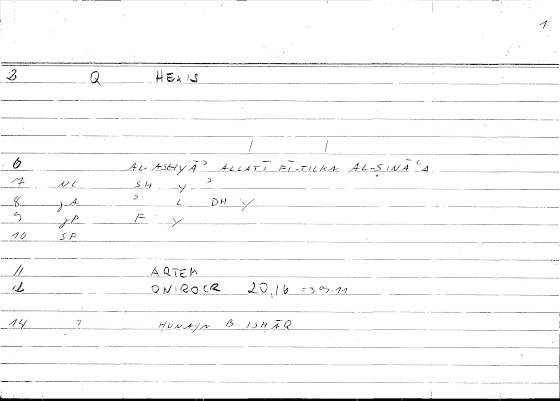 1.
3 Q HEXIS
6 AL-ASHYĀʾ ALLATĪ FĪ-TILKA AL-ṢINĀʿA
7 NC SH Y ʾ
8 gA ʾ L DH Y
9 gP F Y
10 SF
11 ARTEM
12 ONIROCR 20,16 =39.11
14 ? HUNAYN B. ISHĀQ